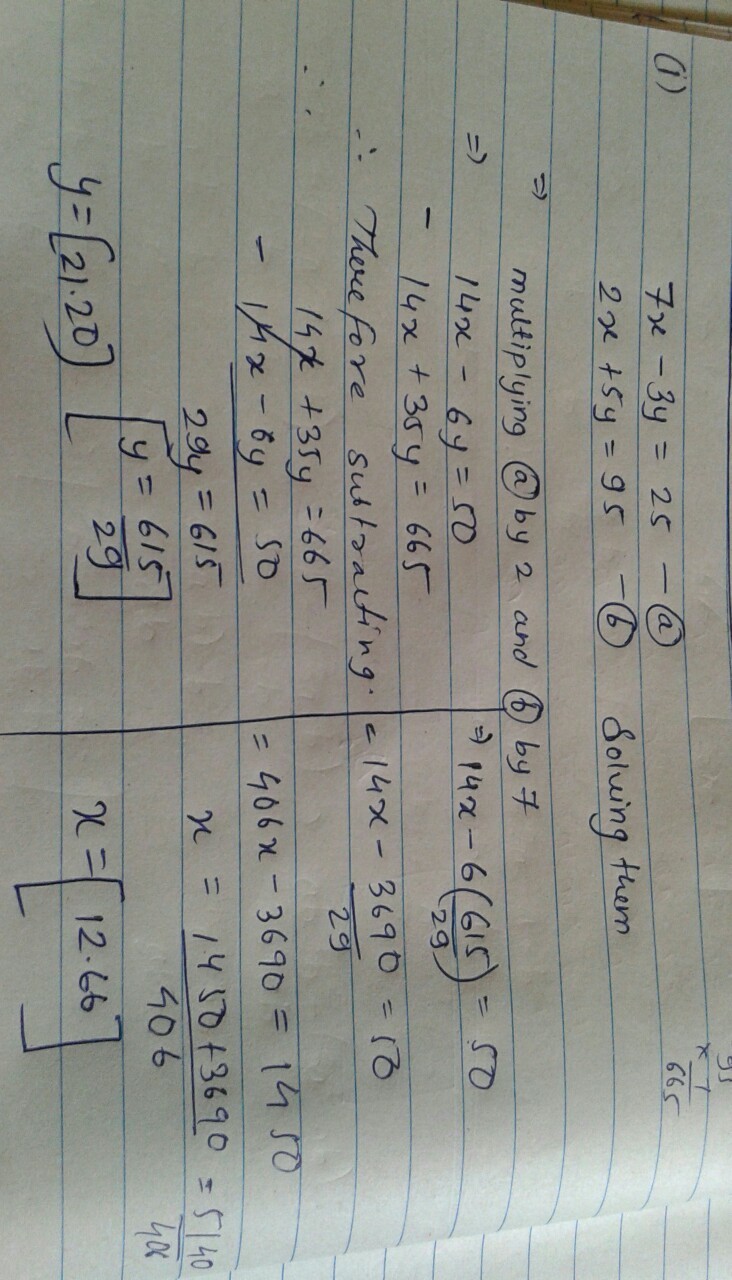 (i) 7x - 3y = 25 - ⓐ
2x + 5y = 95 - ⓑ Solving them
95
x 7
665
⇒ multiplying ⓐ by 2 and ⓑ by 7
⇒ 14x - 6y = 50
- 14x + 35y = 665
∴ Therefore subtracting.
∴ 14x + 35y = 665
- 14x - 6y = 50
29y = 615
[y = 615/29]
y = [21.20]
⇒ 14x - 6(615/29) = 50
= 14x - 3690/29 = 50
= 406x - 3690 = 1450
x = 1450+3690/406 = 5140/406
x = [12.66]